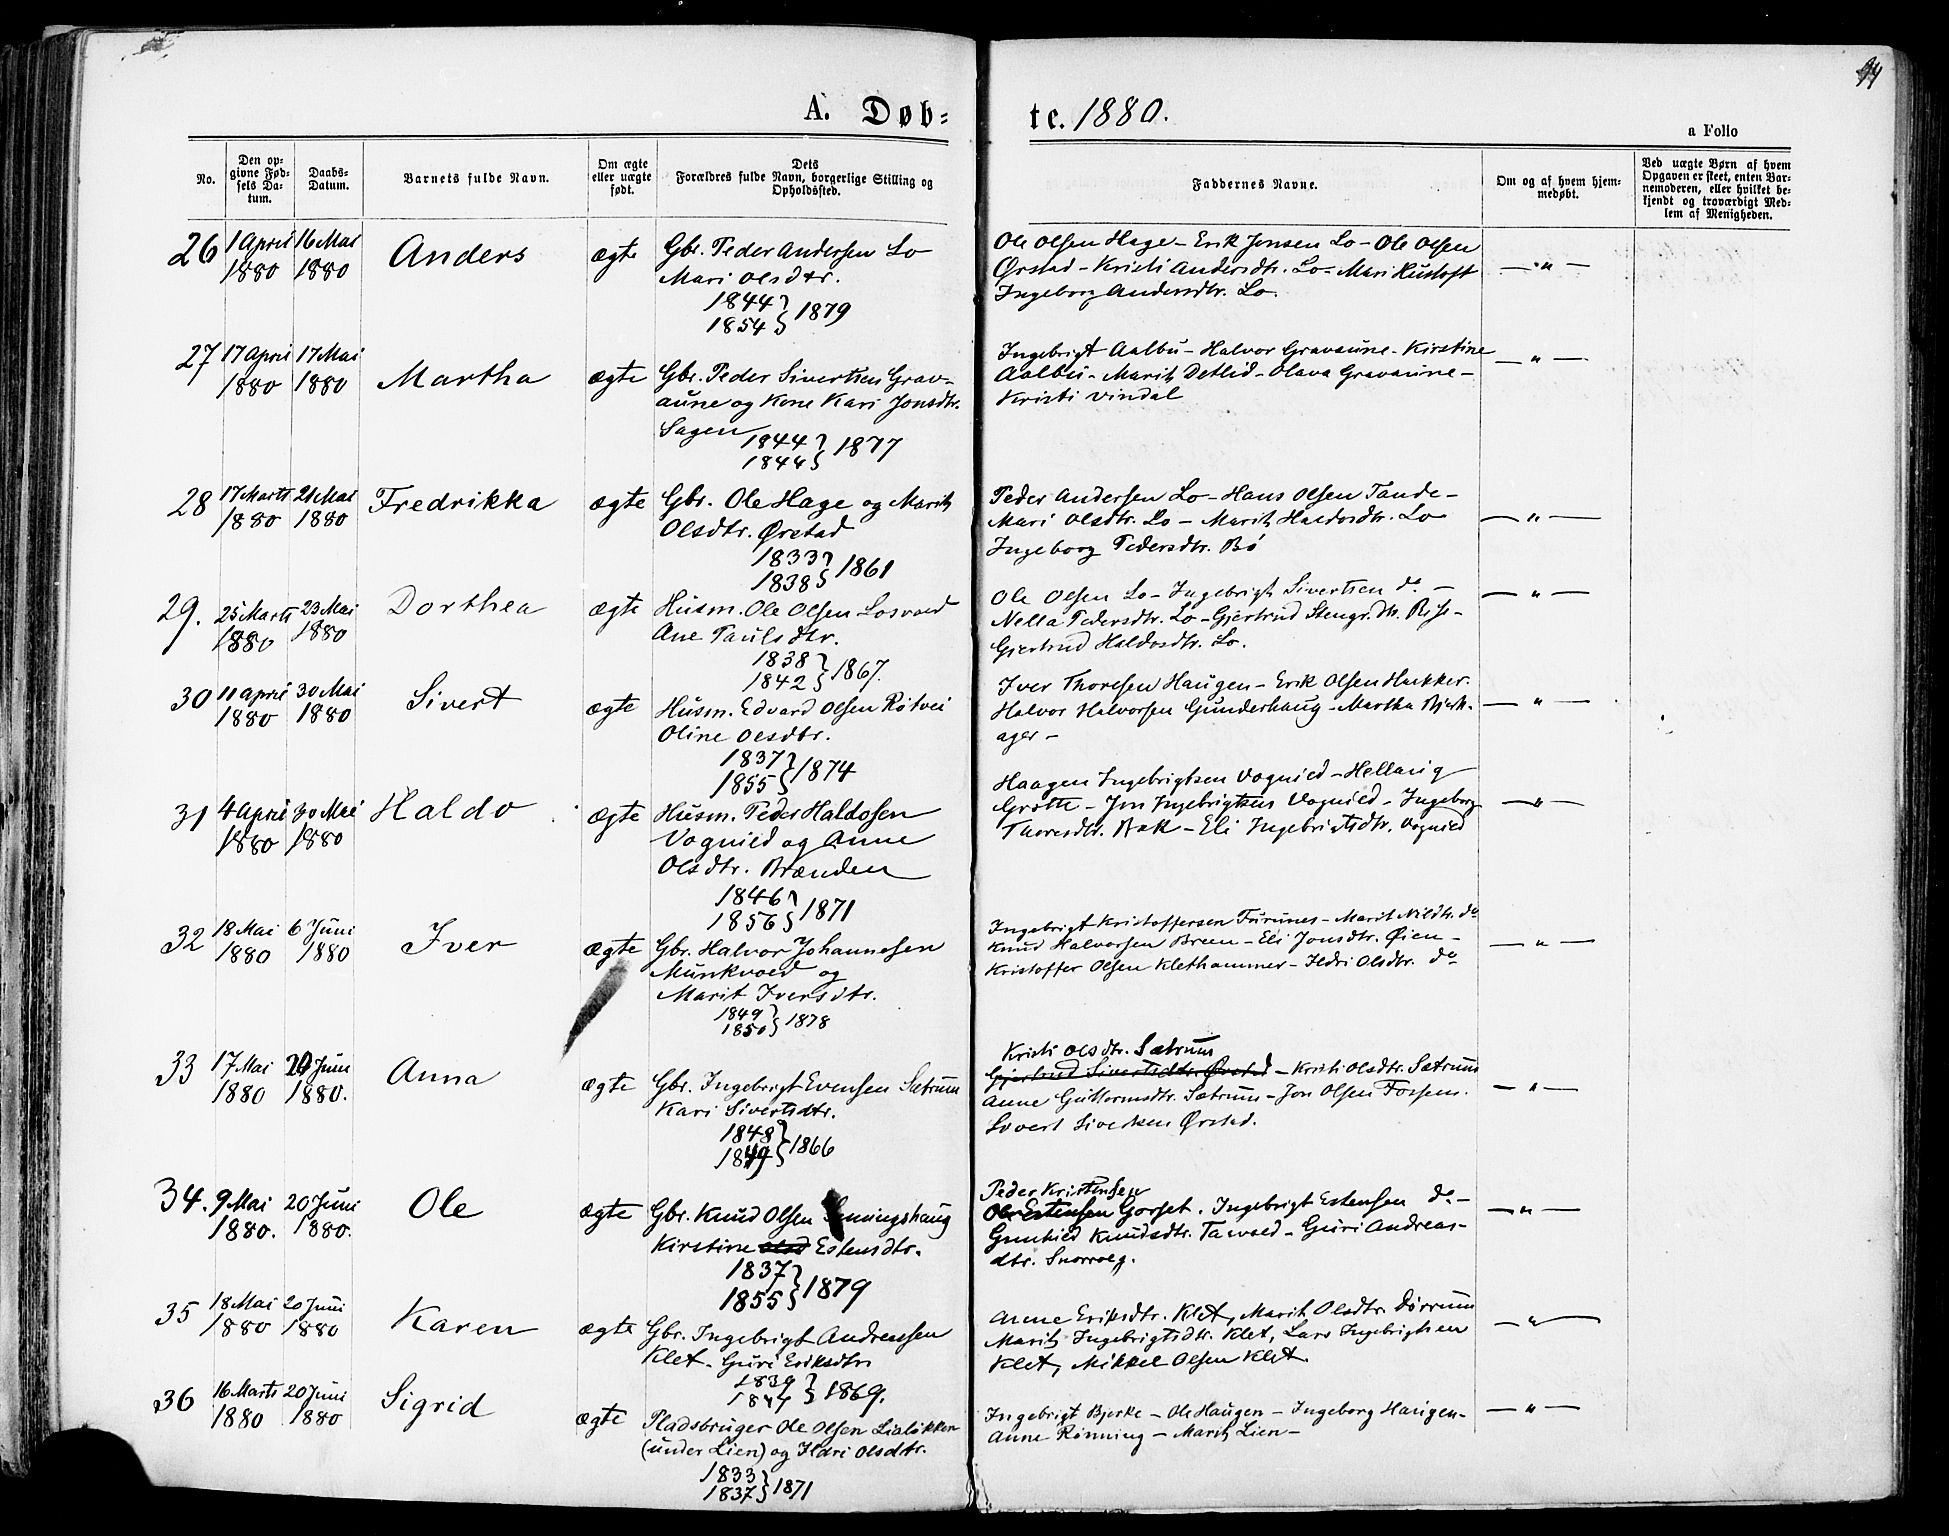 94
A. Døb=
te. 1880.
a Folio
No.
Den op-
givne Fød-
sels Da-
tum.
Daabs-
Datum.
Barnets fulde Navn.
Om ægte
eller uægte
født.
Dets
Forældres fulde Navn, borgerlige Stilling og
Opholdssted.
Faddernes Navne.
Om og af hvem hjem-
medøbt.
Ved uægte Børn af hvem
Opgaven er skeet, enten Bar-
nemoderen, eller hvilket be-
kjendt og troværdigt Med-
lem af Menigheden.
26 1 April 16 Mai Anders ægte Gbr. Peder Andersen Lo
1880 1880 Mari Olsdtr.
1844 } 1879
1854
Ole Olsen Hage - Erik Jonsen Lo - Ole Olsen
Ørstad - Kristi Andersdtr. Lo - Mari Hustoft — " —
Ingeborg Andersdtr. Lo.
27 17 April 17 Mai Martha ægte Gbr. Peder Sivertsen Grav-
1880 1880 aune og Kone Kari Jonsdtr.
Sagen
1844 } 1877
1844
Ingebrigt Aalbu - Halvor Gravaune - Kirstine — " —
Aalbu - Marit Detlid - Olava Gravaune -
Kristi Vindal
28 17 Marts 21 Mai Fredrikka ægte Gbr. Ole Hage og Marit
1880 1880 Olsdtr. Ørstad
1833 } 1861
1838
Peder Andersen Lo - Hans Olsen Tande -
Mari Olsdtr. Lo - Marit Haldosdtr. Lo — " —
Ingeborg Pedersdtr. Bö
29. 25 Marts 23 Mai Dorthea ægte Husm. Ole Olsen Losvold
1880 1880 Ane Paulsdtr.
1838 } 1867.
1842
Ole Olsen Lo - Ingebrigt Sivertsen do - — " —
Nella Pedersdtr. Lo - Gjertrud Stengr.dtr. Rise -
Gjertrud Haldosdtr. Lo.
30 11 April 30 Mai Sivert ægte Husm. Edvard Olsen Rötvei
1880 1880 Oline Olsdtr.
1837 } 1874
1855
Iver Thoresen Haugen - Erik Olsen Hækker.
Halvor Halvorsen Gunderhaug - Martha Bjerk- — " —
ager -
31 4 April 30 Mai Haldo ægte Husm. Peder Haldosen
1880 1880 Vognild og Anne
Olsdtr. Brænden
1846 } 1871
1856
Haagen Ingebrigtsen Vognild - Hellarig
Grötte - Jon Ingebrigtsen Vognild - Ingeborg — " —
Thoresdtr. Bak - Eli Ingebrigtsdtr. Vognild
32 18 Mai 6 Juni Iver ægte Gbr. Halvor Johannesen
1880 1880 Munkvold og
Marit Iversdtr.
1849 } 1878
1850
Ingebrigt Kristoffersen Furunes - Marit Nilsdtr. do
Knud Halvorsen Breen - Eli Jonsdtr. Øien - — " —
Kristoffer Olsen Klethammer - Ildri Olsdtr. do
33 17 Mai 20 Juni Anna ægte Gbr. Ingebrigt Evensen Sætrum
1880 1880. Kari Sivertsdtr.
1848 } 1866
1849
Kristi Olsdtr. Sætrum
Gjertrud Sivertsdtr. Ørstad - Kristi Olsdtr. Sætrum
Anne Guttormsdtr. Sætrum - Jon Olsen Fossem. — " —
Sivert Sivertsen Ørstad.
34. 9 Mai 20 Juni Ole ægte Gbr. Knud Olsen
1880. 1880. Kirstine Olsd Estensdtr.
1837 } 1879
1855
Peder Kristensen
Ole Estensen Gorset. Ingebrigt Estensen do - — " —
Gunhild Knudsdtr. Tavold - Guri Andreas-
dtr. Snorroeg.
35 18 Mai 20 Juni Karen ægte Gbr. Ingebrigt Andreasen
1880 1880 Klet. Guri Eriksdtr.
1839 } 1869.
Anne Eriksdtr. Klet, Marit Olsdtr. Dörrum
Marit Ingebrigtsdtr. Klet, Lars Ingebrigtsen — " —
Klet, Mikkel Olsen Klet.
36 16 Marts 20 Juni Sigrid ægte Pladsbruger Ole Olsen Lialökken
1880 1880 (under Lien) og Ildri Olsdtr.
1833 } 1871
1837
Ingebrigt Bjerke - Ole Haugen - Ingeborg Haugen - — " —
Anne Rönning - Marit Lien -